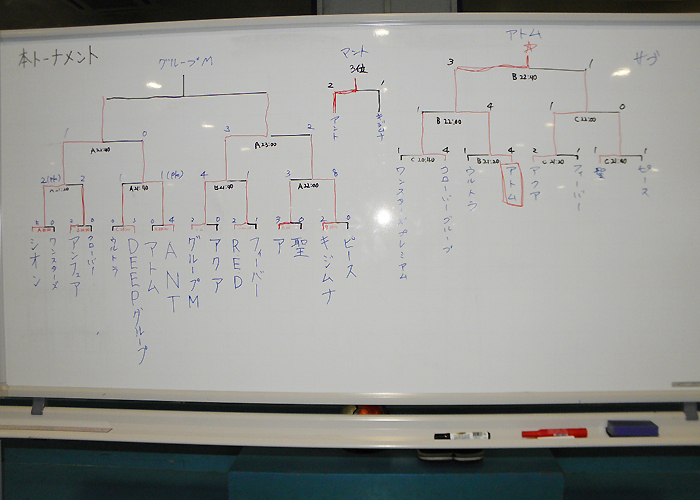 本トーナメント
グループM
マント
3位
アトム
サブ
3
1
B 22:40
2
1
アント
キジムナ
1
0
A 21:40
3
2
A 23:00
1
4
B 22:00
1
0
C 22:00
2
1
1
4
1
3
8
B 21:40
A 22:00
1
4
C 20:40
1
4
B 21:20
2
1
C 21:20
1
1
C 21:40
シオン
ワンスターズ
アンフェア
クローバー
ウルトラ
DEEPグループ
アトム
ANT
グループM
アクア
RED
フィーバー
ア
聖
キジムナ
ピース
ワンスターズプレミアム
クローバーグループ
ウルトラ
アトム
アクア
フィーバー
聖
ピース